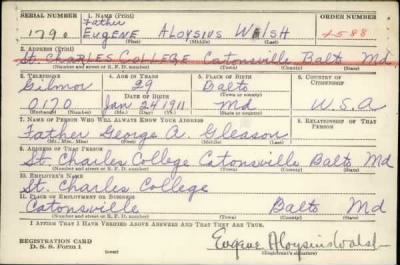 SERIAL NUMBER 1. NAME (Print) ORDER NUMBER
Father
1790 EUGENE ALOYSIUS WALSH 2588
(First) (Middle) (Last)
2. ADDRESS (Print)
St. CHARLES COLLEGE Catonsville Balto Md
(Number and street or R. F. D. number) (Town) (County) (State)
3. TELEPHONE 4. AGE IN YEARS 5. PLACE OF BIRTH 6. COUNTRY OF CITIZENSHIP
Gilmor 29 Balto
DATE OF BIRTH (Town or county)
0170 Jan 24 1911 Md U.S.A
(Exchange) (Number) (Mo.) (Day) (Yr.) (State or country)
7. NAME OF PERSON WHO WILL ALWAYS KNOW YOUR ADDRESS 8. RELATIONSHIP OF THAT PERSON
Father George A. Gleason
(Mr., Mrs., Miss) (First) (Middle) (Last)
9. ADDRESS OF THAT PERSON
St. Charles College Catonsville Balto Md
(Number and street or R. F. D. number) (Town) (County) (State)
10. EMPLOYER'S NAME
St. Charles College
11. PLACE OF EMPLOYMENT OR BUSINESS
Catonsville Balto Md
(Number and street or R. F. D. number) (Town) (County) (State)
I AFFIRM THAT I HAVE VERIFIED ABOVE ANSWERS AND THAT THEY ARE TRUE.
REGISTRATION CARD
D. S. S. Form 1 (over) Eugene Aloysius Walsh
(Registrant's signature)